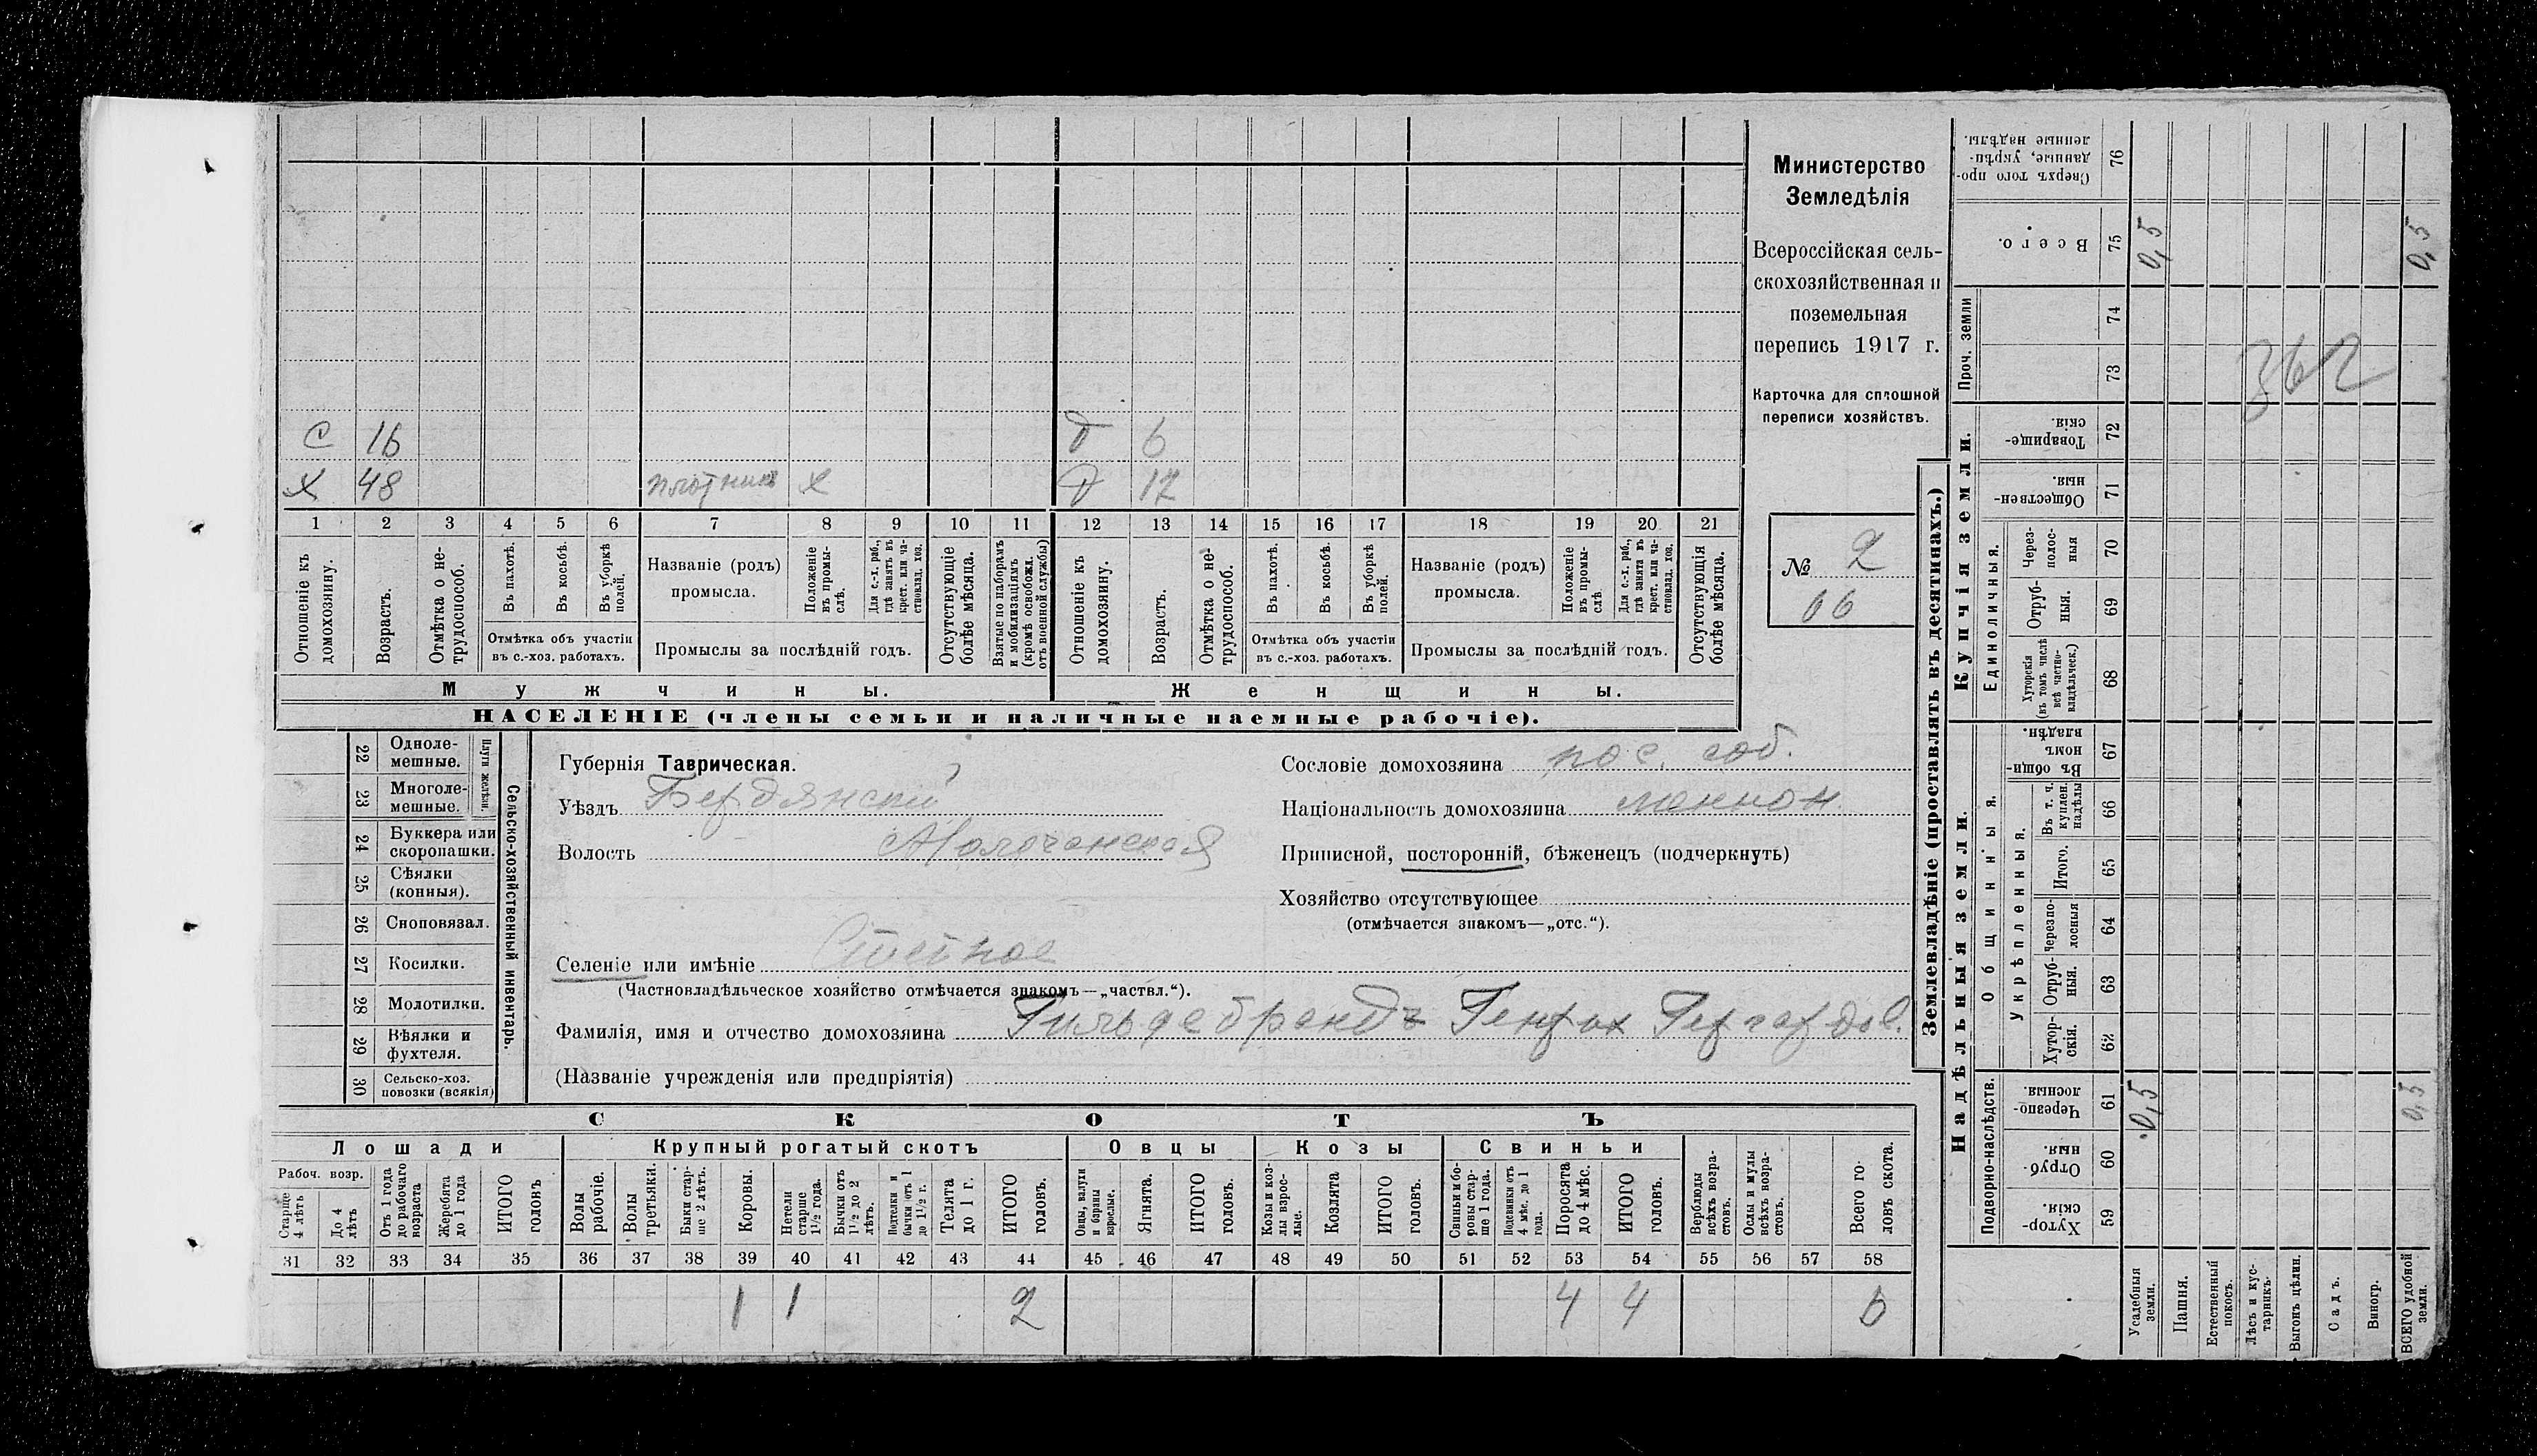 С 16 д 6
Х 48 плотник х д 12
1 2 3 4 5 6 7 8 9 10 11 12 13 14 15 16 17 18 19 20 21
Отношеніе къ домохозяину.
Возрастъ.
Отмѣтка о не-
трудоспособ.
Въ пахотѣ.
Въ косьбѣ.
Въ уборкѣ
полей.
Отмѣтка объ участіи
въ с.-хоз. работахъ.
Названіе (родъ)
промысла.
Положеніе
въ промы-
слѣ.
Для с.-х. раб.,
гдѣ занятъ въ
крест. или ча-
стновлад. хоз.
Промыслы за послѣдній годъ.
Отсутствующіе
болѣе мѣсяца.
Взятые по наборамъ
и мобилизаціямъ
(кромѣ освобожд.
отъ военной службы)
Отношеніе къ
домохозяину.
Возрастъ.
Отмѣтка о не-
трудоспособ.
Въ пахотѣ.
Въ косьбѣ.
Въ уборкѣ
полей.
Отмѣтка объ участіи
въ с.-хоз. работахъ.
Названіе (родъ)
промысла.
Положеніе
въ промы-
слѣ
Для с.-х. раб.,
гдѣ занята въ
крест. или ча-
стновлад. хоз.
Промыслы за послѣдній годъ.
Отсутствующія
болѣе мѣсяца.
Мужчины.
Женщины.
НАСЕЛЕНІЕ (члены семьи и наличные наемные рабочіе).
Министерство
Земледѣлія
Всероссійская сель-
скохозяйственная и
поземельная
перепись 1917 г.
Карточка для сплошной
переписи хозяйствъ.
№ 2
66
22 Одноле-
мешные.
23 Многоле-
мешные.
Плуги желѣзн.
24 Буккера или
скоропашки.
25 Сѣялки
(конныя).
26 Сноповязал.
27 Косилки.
28 Молотилки.
29 Вѣялки и
фухтеля.
30 Сельско-хоз.
повозки (всякія)
Сельско-хозяйственный инвентарь.
Губернія Таврическая.
Уѣздъ Бердянский
Волость Молочанская
Селеніе или имѣніе
(Частновладѣльческое хозяйство отмѣчается знакомъ—„частвл.“).
Фамилія, имя и отчество домохозяина Гильдебрандъ Генрих Гергардов.
(Названіе учрежденія или предпріятія)
Сословіе домохозяина пос. соб.
Національность домохозяина меннон.
Приписной, посторонній, бѣженецъ (подчеркнуть)
Хозяйство отсутствующее
(отмѣчается знакомъ—„отс.“).
СКОТЪ
Лошади
Рабоч. возр.
Старше
4 лѣтъ
До 4
лѣтъ
Отъ 1 года
до рабочаго
возраста
Жеребята
до 1 года
ИТОГО
головъ
Крупный рогатый скотъ
Волы
рабочіе.
Волы
третьяки.
Быки стар-
ше 2 лѣтъ.
Коровы.
Нетели
старше
1½ года.
Бычки отъ
1½ до 2
лѣтъ.
Подтелки и
бычки отъ 1
до 1½ г.
Телята
до 1 г.
ИТОГО
головъ.
Овцы
Овцы, валухи
и бараны
взрослые.
Ягнята.
ИТОГО
головъ.
Козы
Козы и коз-
лы взрос-
лые.
Козлята
ИТОГО
головъ.
Свиньи
Свиньи и бо-
ровы стар-
ше 1 года.
Подсвинки отъ
4 мѣс. до 1
года.
Поросята
до 4 мѣс.
ИТОГО
головъ.
Верблюды
всѣхъ возра-
стовъ.
Ослы и мулы
всѣхъ возра-
стовъ.
Всего го-
ловъ скота.
31 32 33 34 35 36 37 38 39 40 41 42 43 44 45 46 47 48 49 50 51 52 53 54 55 56 57 58
1 1 2 4 4 6
Землевладѣніе (проставлять въ десятинахъ.)
Надѣльныя земли.
Подворно-наслѣдств.
Хутор-
скія. 59
Отруб-
ныя. 60
Черезпо-
лосныя. 61
Общинныя.
Укрѣпленныя.
Хутор-
скія. 62
Отруб-
ныя. 63
Черезпо-
лосныя 64
Итого. 65
Въ т. ч.
куплен.
надѣлы 66
Въ общин-
номъ
владѣн. 67
Купчія земли.
Единоличныя.
Хуторскія
(въ томъ числѣ
всѣ частно-
владѣльческ.) 68
Отруб-
ныя. 69
Через-
полос-
ныя 70
Обществен-
ныя. 71
Товарище-
скія. 72
Проч. земли
73 74
Всего. 75
Сверхъ того про-
данные, укрѣп-
ленные надѣлы. 76
Усадебныя
земли.
0,5 0,5
Пашня.
Естественный
покосъ.
Лѣсъ и кус-
тарникъ.
Выгонъ цѣлин.
Садъ.
Виногр.
ВСЕГО удобной
земли.
0,5 0,5
362